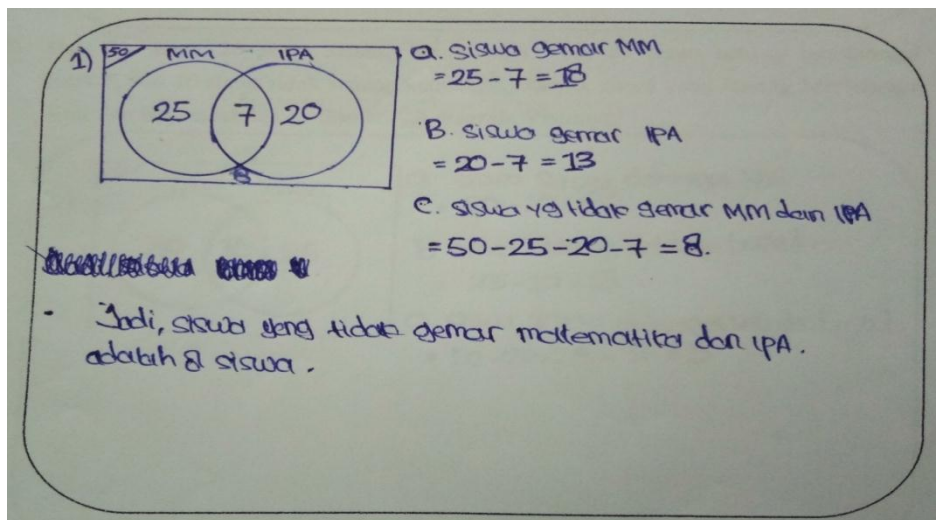 1) 50 MM IPA
25 7 20
8
a. siswa gemar MM
= 25 - 7 = 18
B. siswa gemar IPA
= 20 - 7 = 13
C. siswa yg tidak gemar MM dan IPA
= 50 - 25 - 20 - 7 = 8.
- Jadi, siswa yang tidak gemar matematika dan IPA.
adalah 8 siswa.